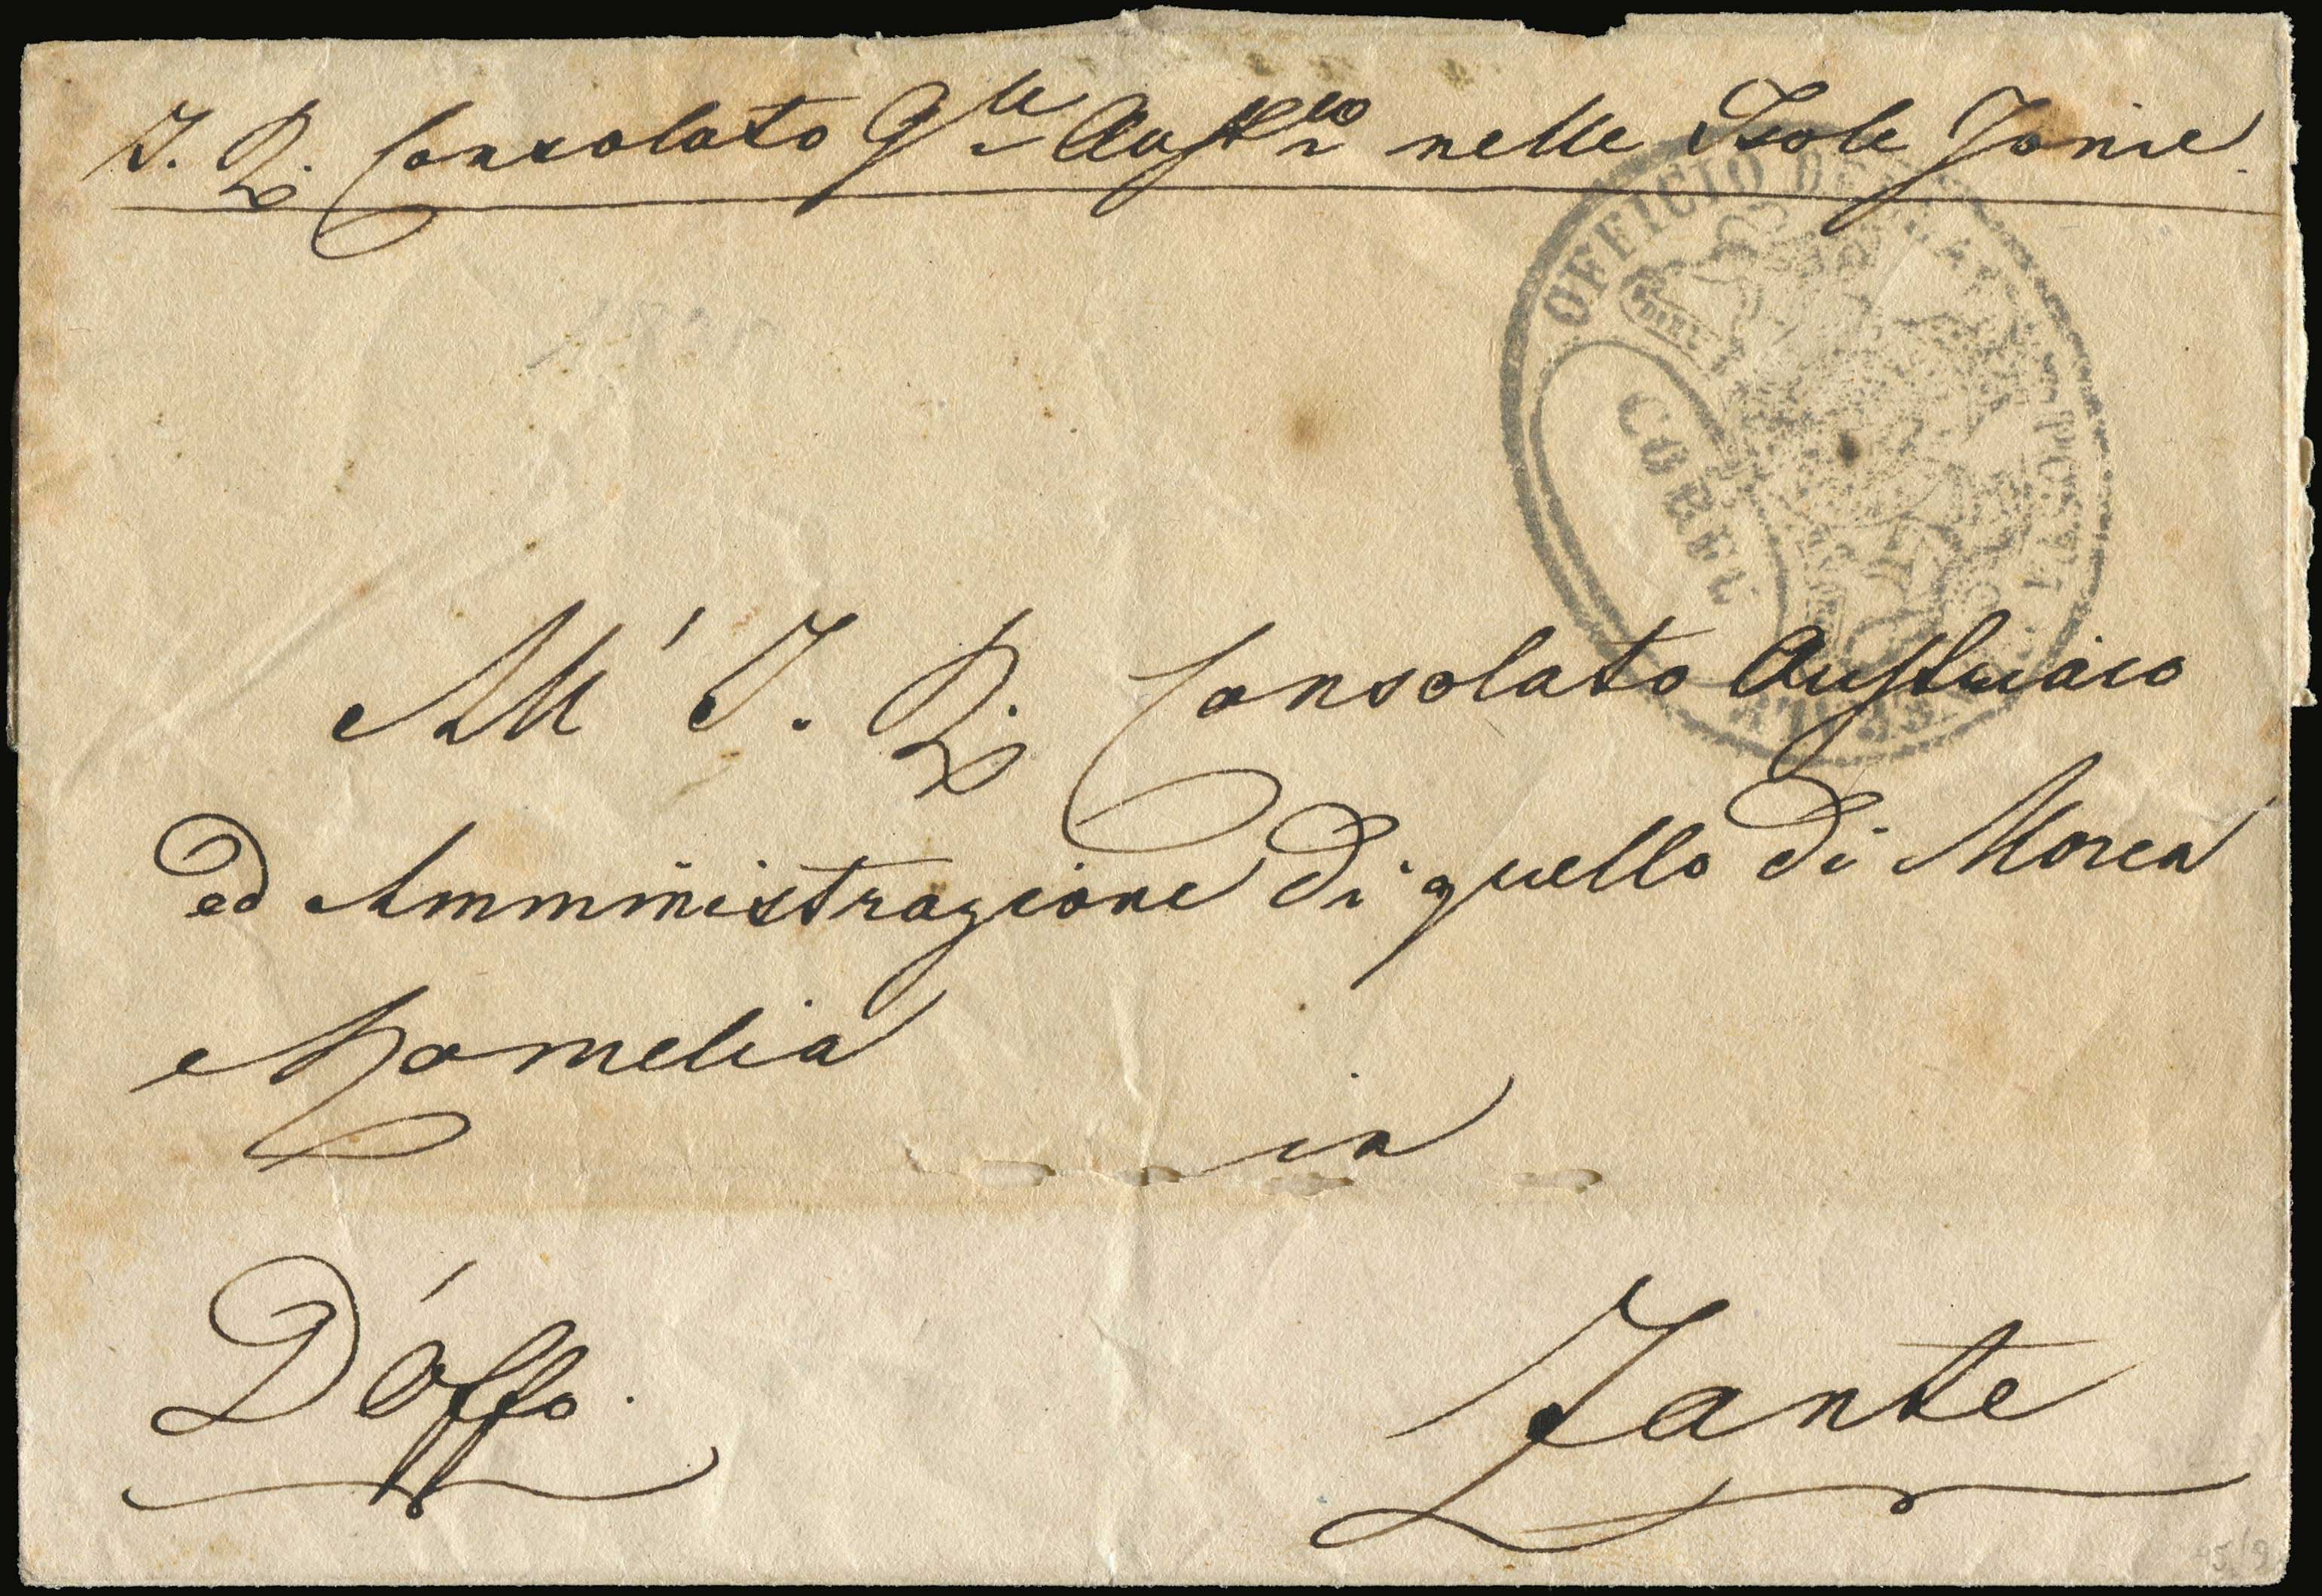 I. R. Consolato Gle Austco nelle Isole Jonie
OFFICIO POSTA
DIEU
CORFU
All' I. R. Consolato Austriaco
ed Amministrazione di quello di Morea
e Romelia
in
D'Offo.
Zante